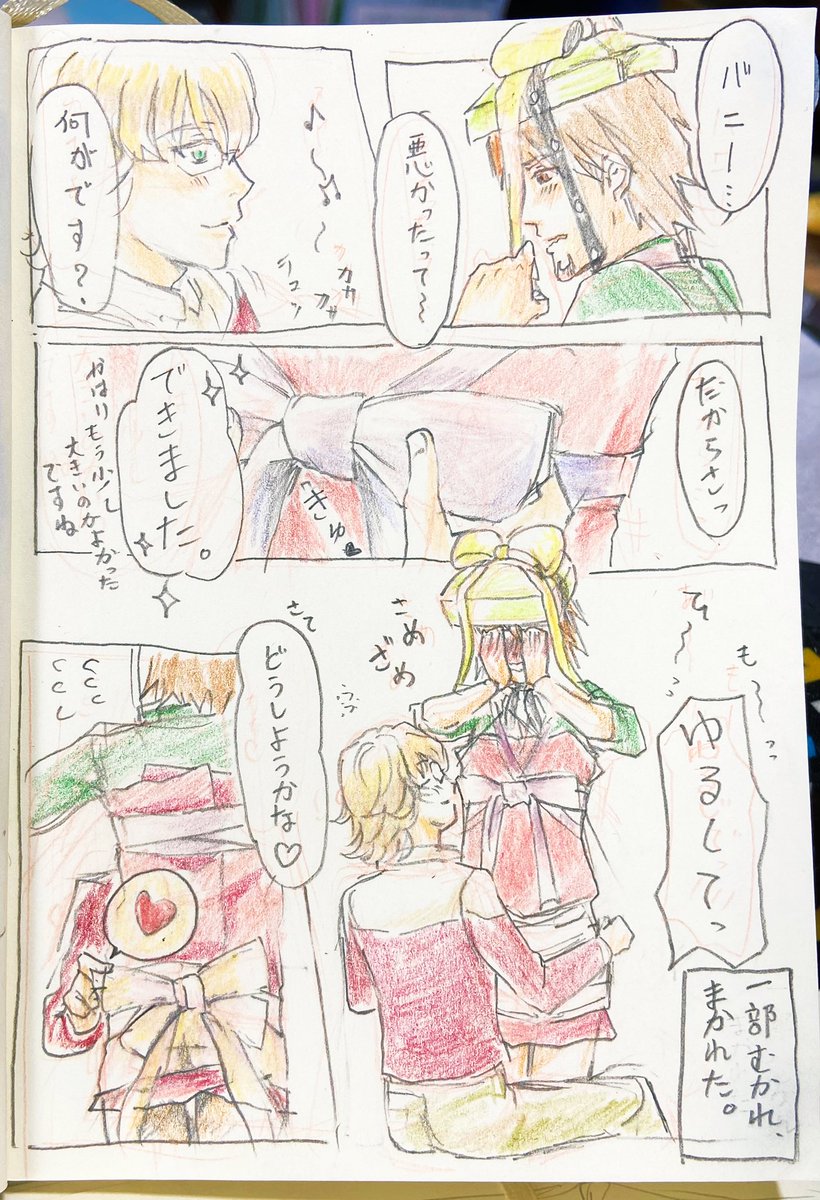 バニー…
悪かったって〜
♪〜♪〜
カカカ
何がです?
だからさっ
きゅ
できました。
やはりもう少し
大きいのがよかった
ですね
も〜〜っっ
て〜〜
ゆるしてっ
一部むかれ、
まかれた。
さめ
ざめ
さて
どうしようかな♡